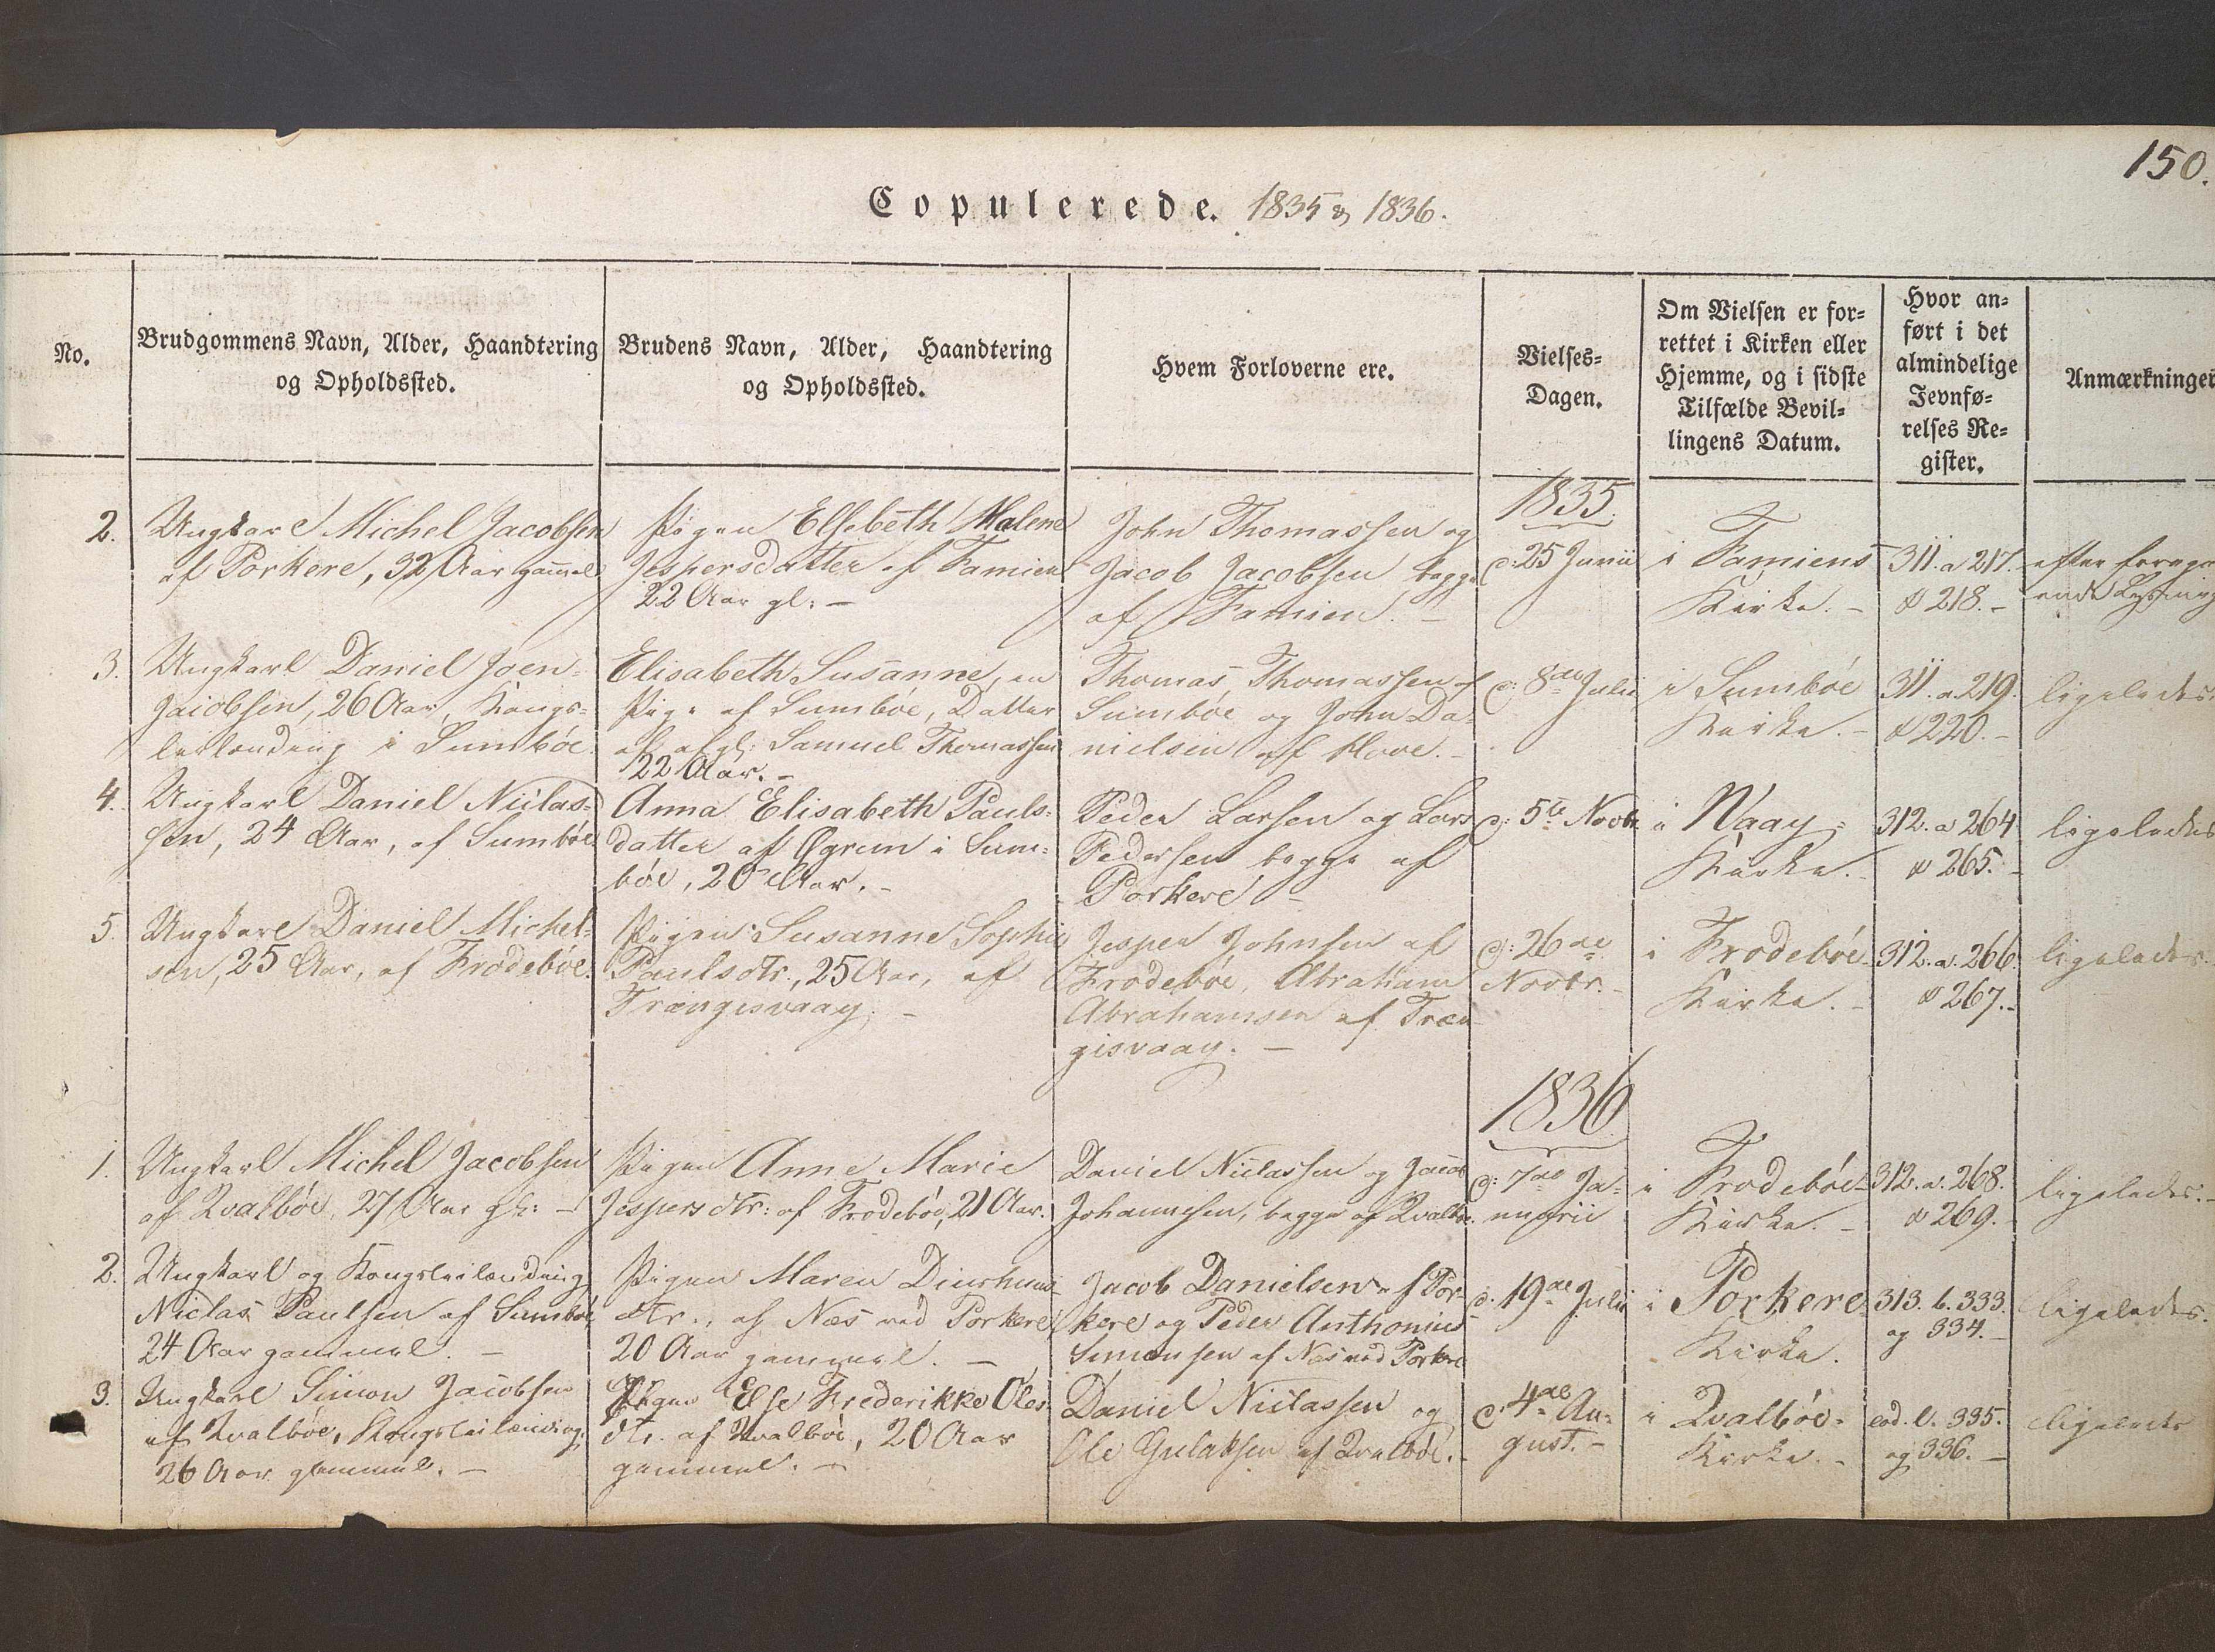 150.
Copulerede. 1835 & 1836.
No.
Brudgommens Navn, Alder, Haandtering
og Opholdssted.
Brudens Navn, Alder, Haandtering
og Opholdssted.
Hvem Forloverne ere.
Vielses-
Dagen.
Om Vielsen er for-
rettet i Kirken eller
Hjemme, og i sidste
Tilfælde Bevil-
lingens Datum.
Hvor an-
ført i det
almindelige
Jevnfø-
relses Re-
gister.
Anmærkninger
1835.
2.
Ungkarl Michel Jacobsen
af Porkere, 32 Aar gammel
Pigen Elsebeth Malene
Jespersdatter af Famien
22 Aar gl: -
John Thomassen og
Jacob Jacobsen, begge
af Famien. -
d: 25 Junii
i Famiens
Kirke. -
311. a 217.
& 218. -
efter forega-
ende Lysning
3.
Ungkarl Daniel Joen-
Jacobsen, 26 Aar, Kongs-
leilending i Sumböe.
Elisabeth Susanne, en
Pige af Sumböe, Datter
af afgl: Samuel Thomassen
22 Aar. -
Thomas Thomassen af
Sumböe og John Da-
nielsen af Hove. -
d: 8de Julii
i Sumböe
Kirke. -
311. a 219.
& 220. -
ligeledes.
4.
Ungkarl Daniel Niclas-
sen, 24 Aar, af Sumböe.
Anna Elisabeth Pauls-
datter af Øgrun i Sum-
böe, 20 Aar. -
Peder Larsen og Lars
Pedersen begge af
Porkere -
d: 5te Novbr
i Waag-
Kirke. -
312. a 264
& 265. -
ligeledes
5.
Ungkarl Daniel Michel-
sen, 25 Aar, af Frodeböe.
Pigen Susanne Sophie
Paulsdtr., 25 Aar, af
Trangisvaag. -
Jesper Johnsen af
Frodeböe, Abraham
Abrahamsen af Tran-
gisvaag. -
d: 26de
Novbr. -
i Frodeböe-
Kirke. -
312. a. 266.
& 267. -
ligeledes. -
1836
1.
Ungkarl Michel Jacobsen
af Qvalböe, 27 Aar gl: -
Pigen Anne Marie
Jespersdtr: af Frodeböe, 21 Aar.
Daniel Niclassen og Jacob
Johannesen, begge af Qvalböe.
d: 7de Ja-
nuarii
i Frodeböe-
Kirke. -
312. a. 268.
& 269. -
ligeledes. -
2.
Ungkarl og Kongsleilending
Niclas Paulsen af Sumböe,
24 Aar gammel. -
Pigen Maren
dtr., af Næs ved Porkere
20 Aar gammel. -
Jacob Danielsen af Por-
kere og Peder Anthonius
Simonsen af Næs ved Porkere
d. 19de Julii
i Porkere
Kirke.
313. b. 333.
og 334. -
ligeledes.
3.
Ungkarl Simon Jacobsen
af Qvalböe, Kongsleilending
26 Aar gammel. -
Pigen Else Frederikke Oles-
dtr. af Qvalböe, 20 Aar
gammel. -
Daniel Niclassen og
Ole Gulaksen af Qvalböe. -
d: 4de Au-
gust. -
i Qvalböe-
Kirke. -
eod. l. 335.
og 336. -
ligeledes